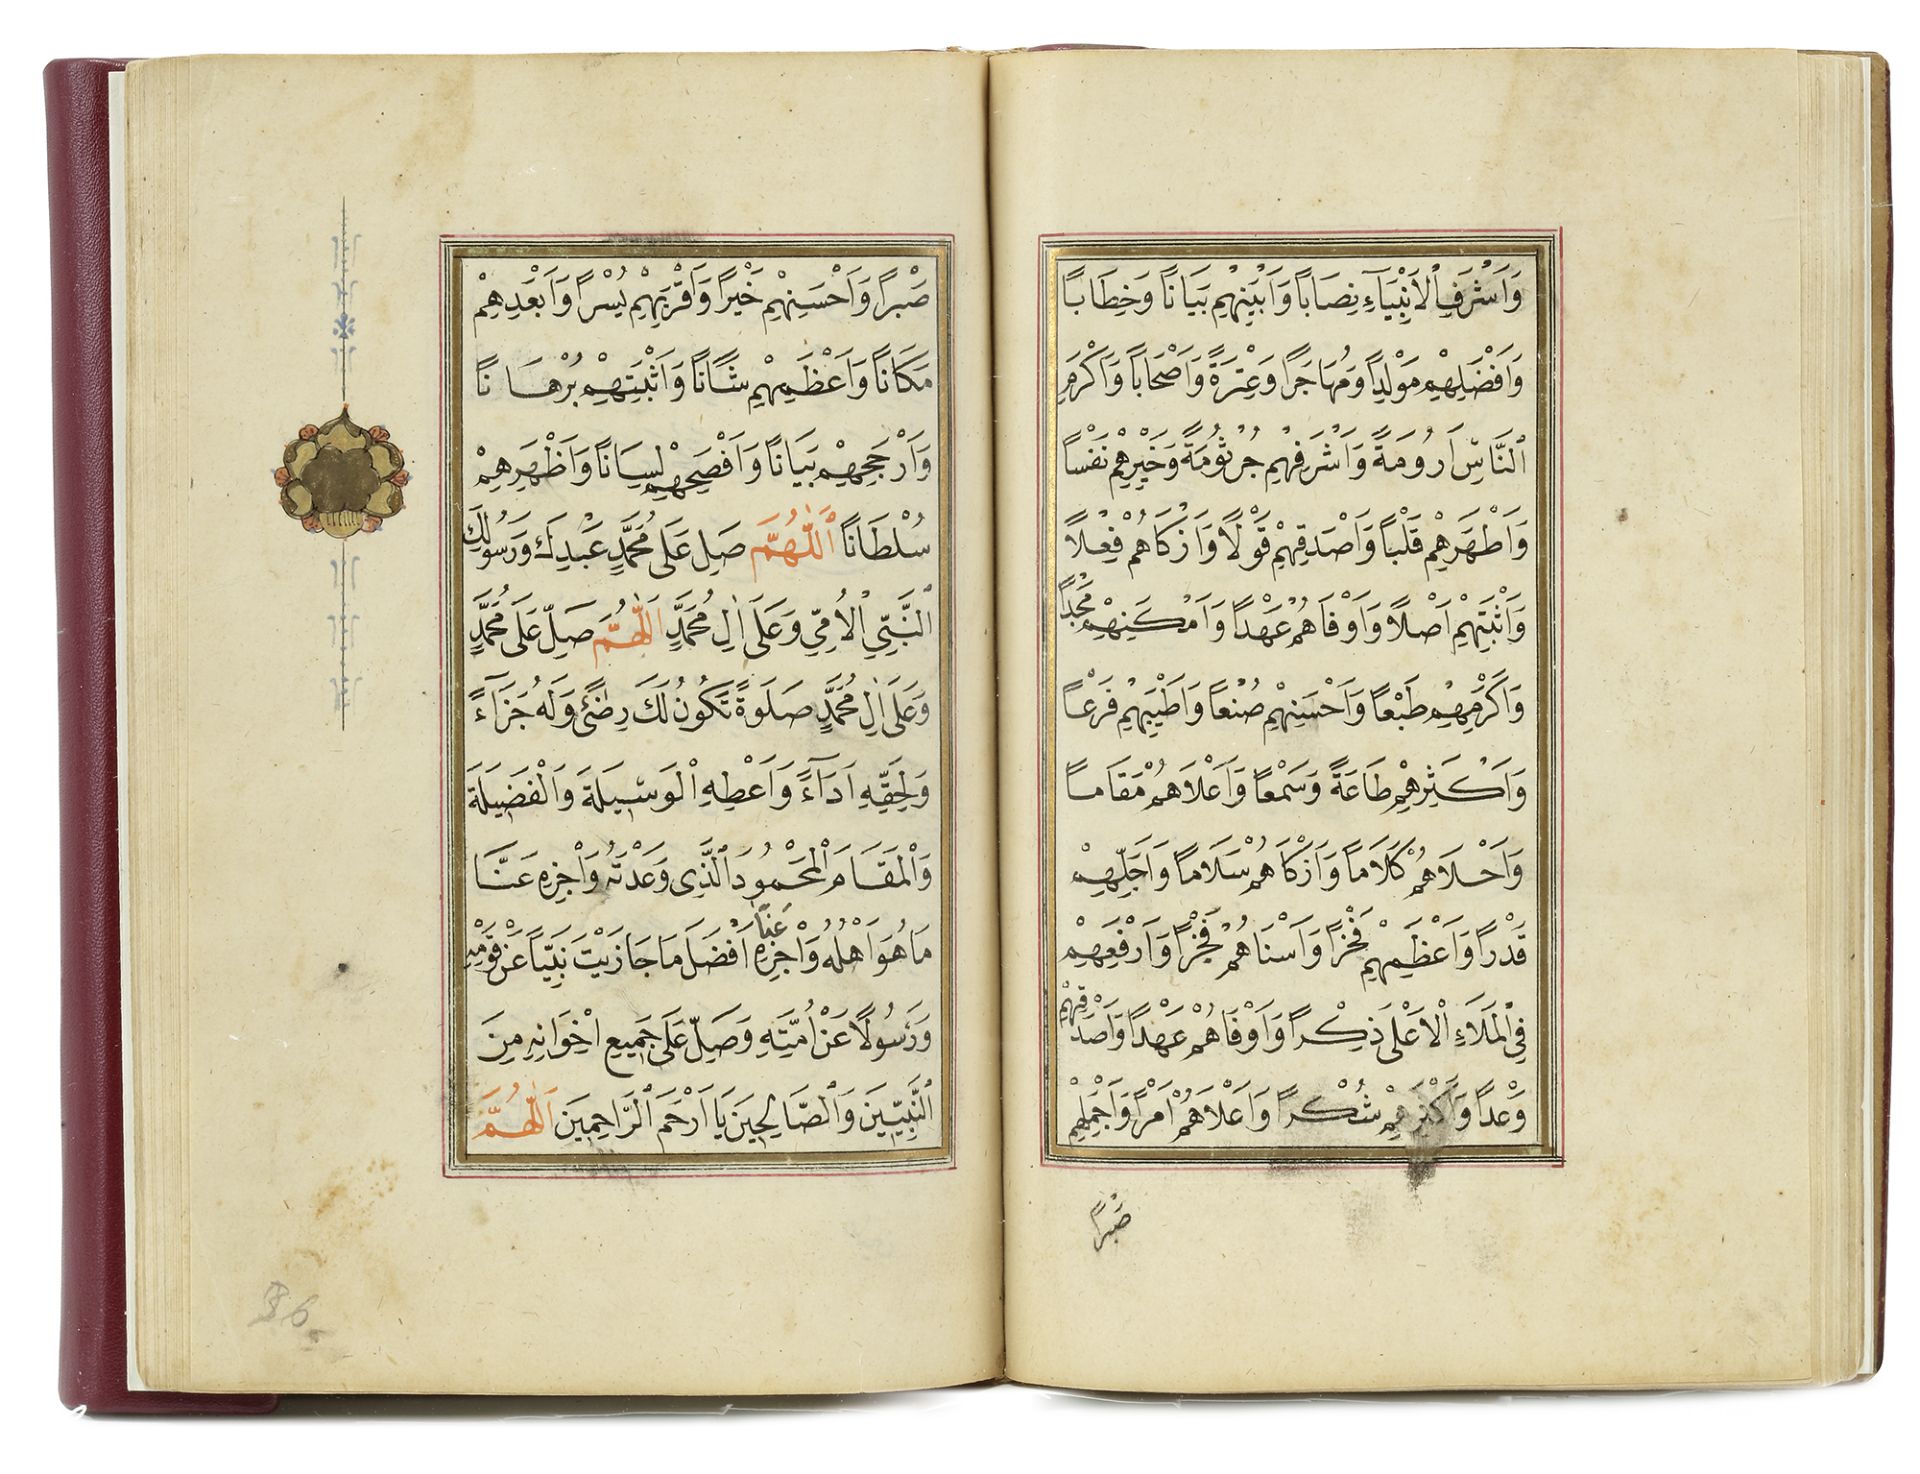 وَاَشْرَفِ الْاَنْبِيَآءِ نِصَابًا وَاَبْيَنِهِمْ بَيَانًا وَخِطَابًا
وَاَفْضَلِهِمْ مَوْلِدًا وَمُهَاجَرًا وَعِتْرَةً وَاَصْحَابًا وَاَكْرَمِ
النَّاسِ اَرُومَةً وَاَشْرَفِهِمْ جُرْثُومَةً وَخَيْرِهِمْ نَفْسًا
وَاَطْهَرِهِمْ قَلْبًا وَاَصْدَقِهِمْ قَوْلًا وَاَزْكَاهُمْ فِعْلًا
وَاَثْبَتِهِمْ اَصْلًا وَاَوْفَاهُمْ عَهْدًا وَاَمْكَنِهِمْ مَجْدًا
وَاَكْرَمِهِمْ طَبْعًا وَاَحْسَنِهِمْ صُنْعًا وَاَطْيَبِهِمْ فَرْعًا
وَاَكْثَرِهِمْ طَاعَةً وَسَمْعًا وَاَعْلَاهُمْ مَقَامًا
وَاَحْلَاهُمْ كَلَامًا وَاَزْكَاهُمْ سَلَامًا وَاَجَلِّهِمْ
قَدْرًا وَاَعْظَمِهِمْ فَخْرًا وَاَسْنَاهُمْ فَخْرًا وَاَرْفَعِهِمْ
فِي الْمَلَاءِ الْاَعْلَى ذِكْرًا وَاَوْفَاهُمْ عَهْدًا وَاَصْدَقِهِمْ
وَعْدًا وَاَكْثَرِهِمْ شُكْرًا وَاَعْلَاهُمْ اَمْرًا وَاَجْمَلِهِمْ
صَبْرًا
صَبْرًا وَاَحْسَنِهِمْ خَيْرًا وَاَقْرَبِهِمْ يُسْرًا وَاَبْعَدِهِمْ
مَكَانًا وَاَعْظَمِهِمْ شَانًا وَاَثْبَتِهِمْ بُرْهَانًا
وَاَرْجَحِهِمْ بَيَانًا وَاَفْصَحِهِمْ لِسَانًا وَاَظْهَرِهِمْ
سُلْطَانًا اَللّٰهُمَّ صَلِّ عَلَى مُحَمَّدٍ عَبْدِكَ وَرَسُولِكَ
النَّبِيِّ الْاُمِّيِّ وَعَلَى اٰلِ مُحَمَّدٍ اَللّٰهُمَّ صَلِّ عَلَى مُحَمَّدٍ
وَعَلَى اٰلِ مُحَمَّدٍ صَلَوةً تَكُونُ لَكَ رِضًى وَلَهُ جَزَآءً
وَلِحَقِّهِ اَدَآءً وَاَعْطِهِ الْوَسِيلَةَ وَالْفَضِيلَةَ
وَالْمَقَامَ الْمَحْمُودَ الَّذِى وَعَدْتَهُ وَاجْزِهِ عَنَّا
مَا هُوَ اَهْلُهُ وَاجْزِهِ عَنَّا اَفْضَلَ مَا جَازَيْتَ نَبِيًّا عَنْ قَوْمِهِ
وَرَسُولًا عَنْ اُمَّتِهِ وَصَلِّ عَلَى جَمِيعِ اِخْوَانِهِ مِنَ
النَّبِيِّينَ وَالصَّالِحِينَ يَا اَرْحَمَ الرَّاحِمِينَ اَللّٰهُمَّ